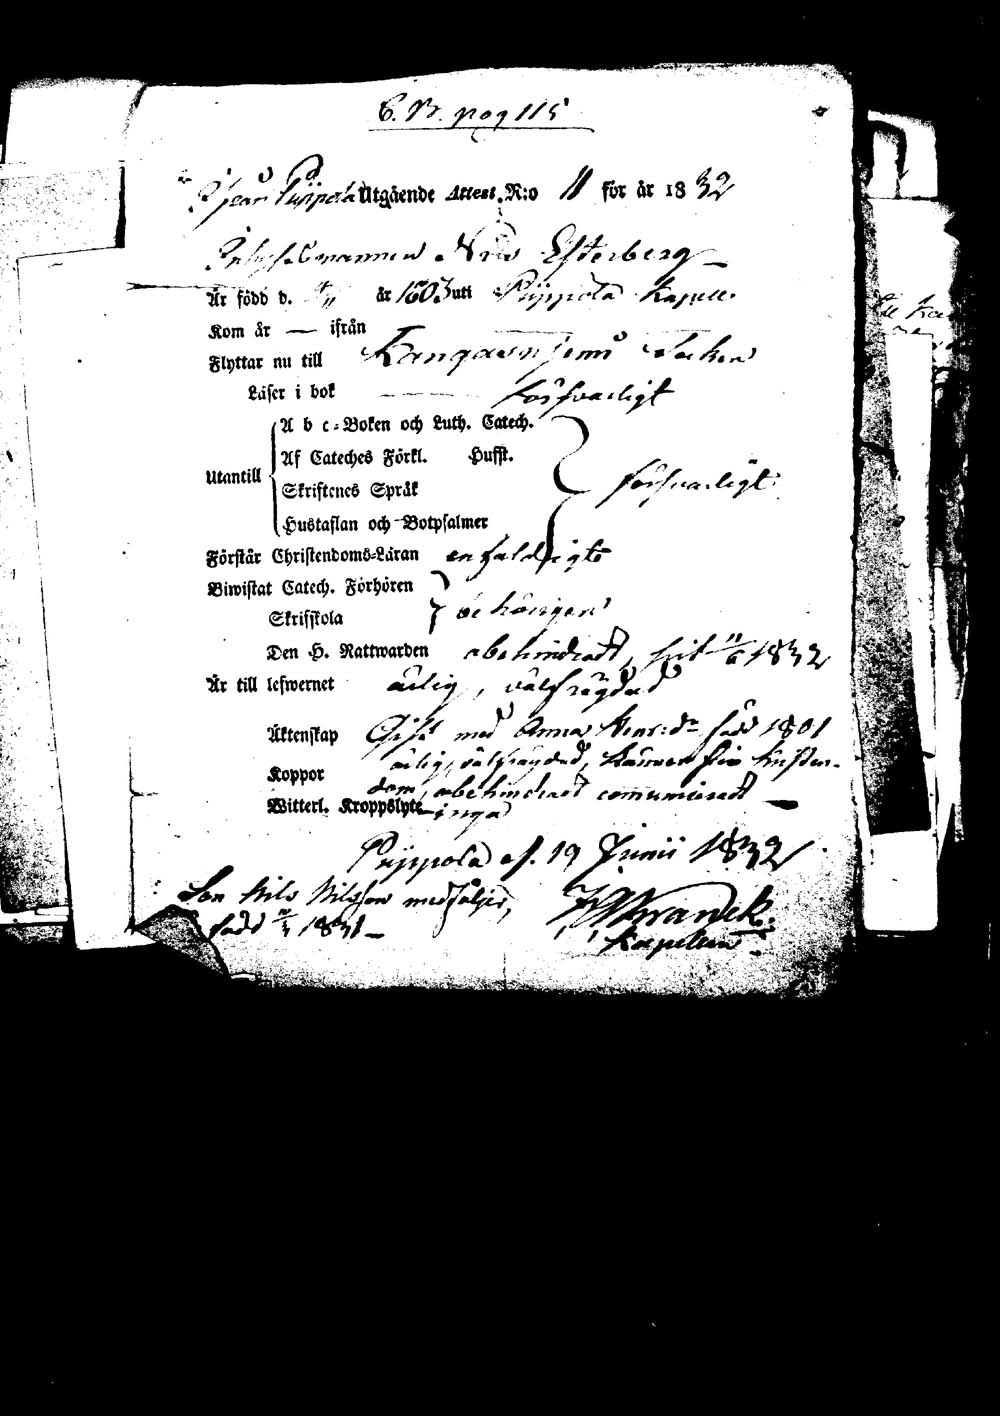 C. B. pag 115
från Pyippola Utgående Attest. N:o 11 för år 1832
Inhyses mannen Nils Esterberg
Är född d. år 1803 uti Pyippola Kapell.
Kom år — ifrån
Flyttar nu till Kangasniemi Socken
Läser i bok försvarligt
Utantill
A b c-Boken och Luth. Catech.
Af Cateches Förkl. Hufst.
Skriftenes Språk
Hustaflan och Botpsalmer
försvarligt
Förstår Christendoms-Läran enfaldigt
Biwistat Catech. Förhören
Skriftskola
behörigen
Den H. Nattwarden obehindradt, sist 11/6 1832
Är till lefwernet ärlig, välfrägdad
Äktenskap Gift med Anna Henr:dr född 1801
ärlig, välfrägdad, känner sin kristen-
Koppor dom, obehindradt communicerat —
Witterl. Kroppslyte — inga
Pyippola d. 19 Junii 1832
Son Nils Nilsson medföljer,
född 1831 —
Kapellan